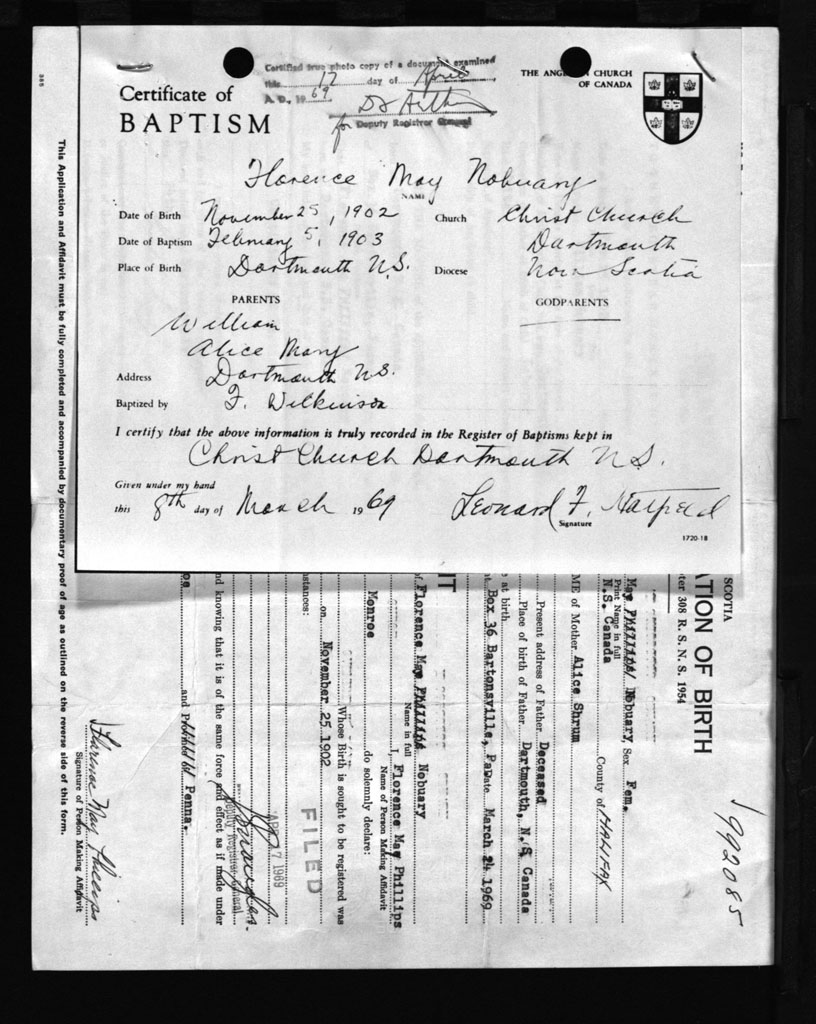 Certified true photo copy of a document examined
this 17 day of April
A. D., 1969
for Deputy Registrar General
Certificate of
BAPTISM
THE ANGLICAN CHURCH
OF CANADA
Florence May Nobuary
NAME
Date of Birth November 25, 1902 Church Christ Church
Date of Baptism February 5, 1903 Dartmouth
Place of Birth Dartmouth N.S. Diocese Nova Scotia
PARENTS GODPARENTS
William
Alice Mary
Address Dartmouth N.S.
Baptized by F. Wilkinson
I certify that the above information is truly recorded in the Register of Baptisms kept in
Christ Church Dartmouth N.S.
Given under my hand
this 8th day of March 1969 Leonard F. Hatfield
Signature
1720-18
SCOTIA
ATION OF BIRTH
ter 308 R. S. N. S. 1954
1992085
May Phillips/ Nobuary Sex Fem.
Print Name in full
N.S. Canada County of HALIFAX
ME of Mother Alice Shrum
Present address of Father Deceased
Place of birth of Father Dartmouth, N.S. Canada
at birth
Box 36 Bartonsville, Pa Date March 24 1969
IT
I, Florence May Phillips
Name of Person Making Affidavit
of Florence May Phillips Nobuary
Name in full
Monroe do solemnly declare:
Whose Birth is sought to be registered was
on November 25 1902
stances:
FILED
APR 17 1969
Deputy Registrar General
nd knowing that it is of the same force and effect as if made under
oe and Penna.
Florence May Phillips
Signature of Person Making Affidavit
This Application and Affidavit must be fully completed and accompanied by documentary proof of age as outlined on the reverse side of this form.